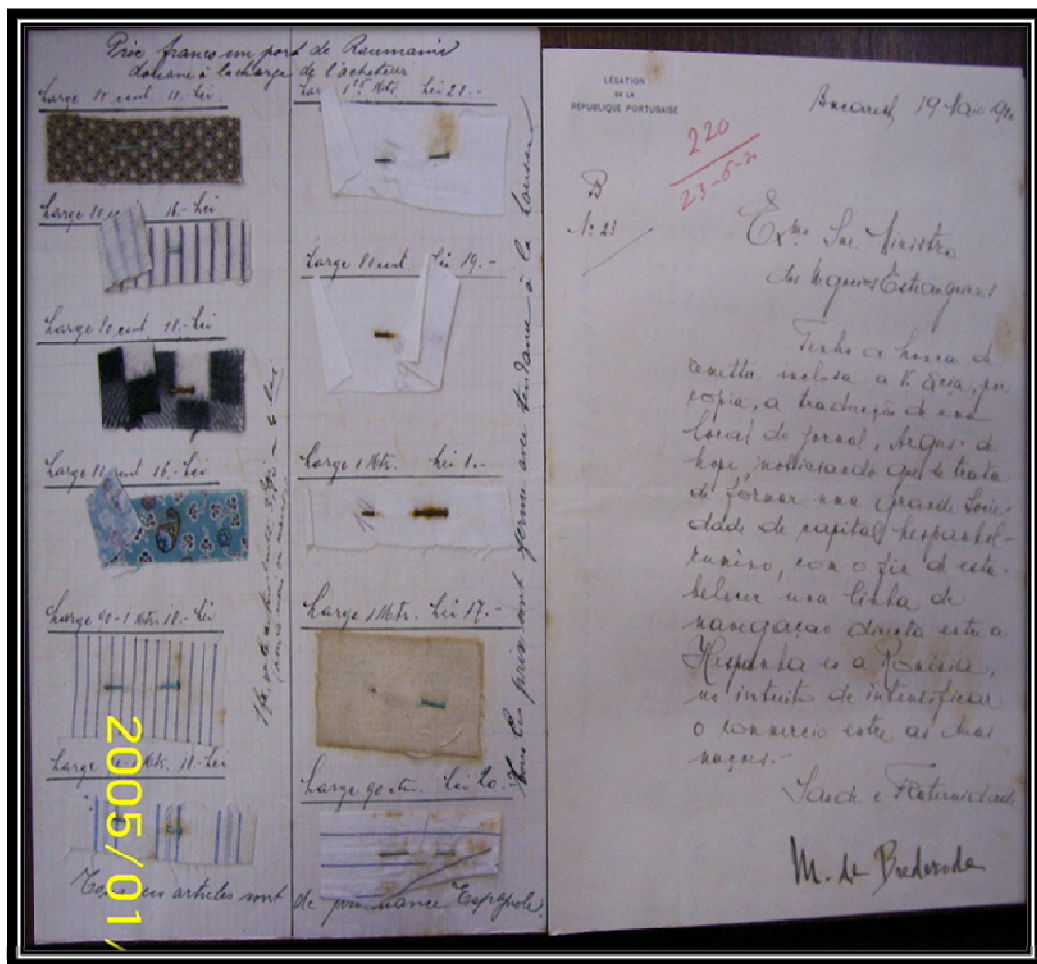 Prix franco un port de Roumanie
douane à la charge de l'acheteur
Large cent 18.- Lei
Large 80 16.- Lei
Large 80 cent 18.- Lei
Large cent 16.- Lei
Large 90-1 Mtr. 18.- Lei
Large Mtr. 18.- Lei
Mtr. Lei 28.-
Large 80 cent Lei 19.-
Large 1 Mtr. Lei
Large 1 Mtr. Lei 17.-
Large 90 ctm. Lei 20.-
Tous les prix sont ferme avec tendance à la hausse
Tous ces articles sont de provenance Espagnole.
2005/01/
LEGATION
DE LA
RÉPUBLIQUE PORTUGAISE
Bucarest, 19 Maio 920
220
23-6-20
Nº 21
Exmo Snr. Ministro
dos Negocios Estrangeiros
Tenho a honra de
remetter inclusa a V. Excia, por
copia, a traducção de uma
local do jornal, Argus de
hoje, noticiando que se trata
de formar uma grande Socie-
dade de capital hespanhol-
rumino, com o fim de esta-
belecer uma linha de
navegação directa entre a
Hespanha e a Romenia,
no intuito de intensificar
o commercio entre as duas
nações.-
Saude e Fraternidade
M. de Bredenrode